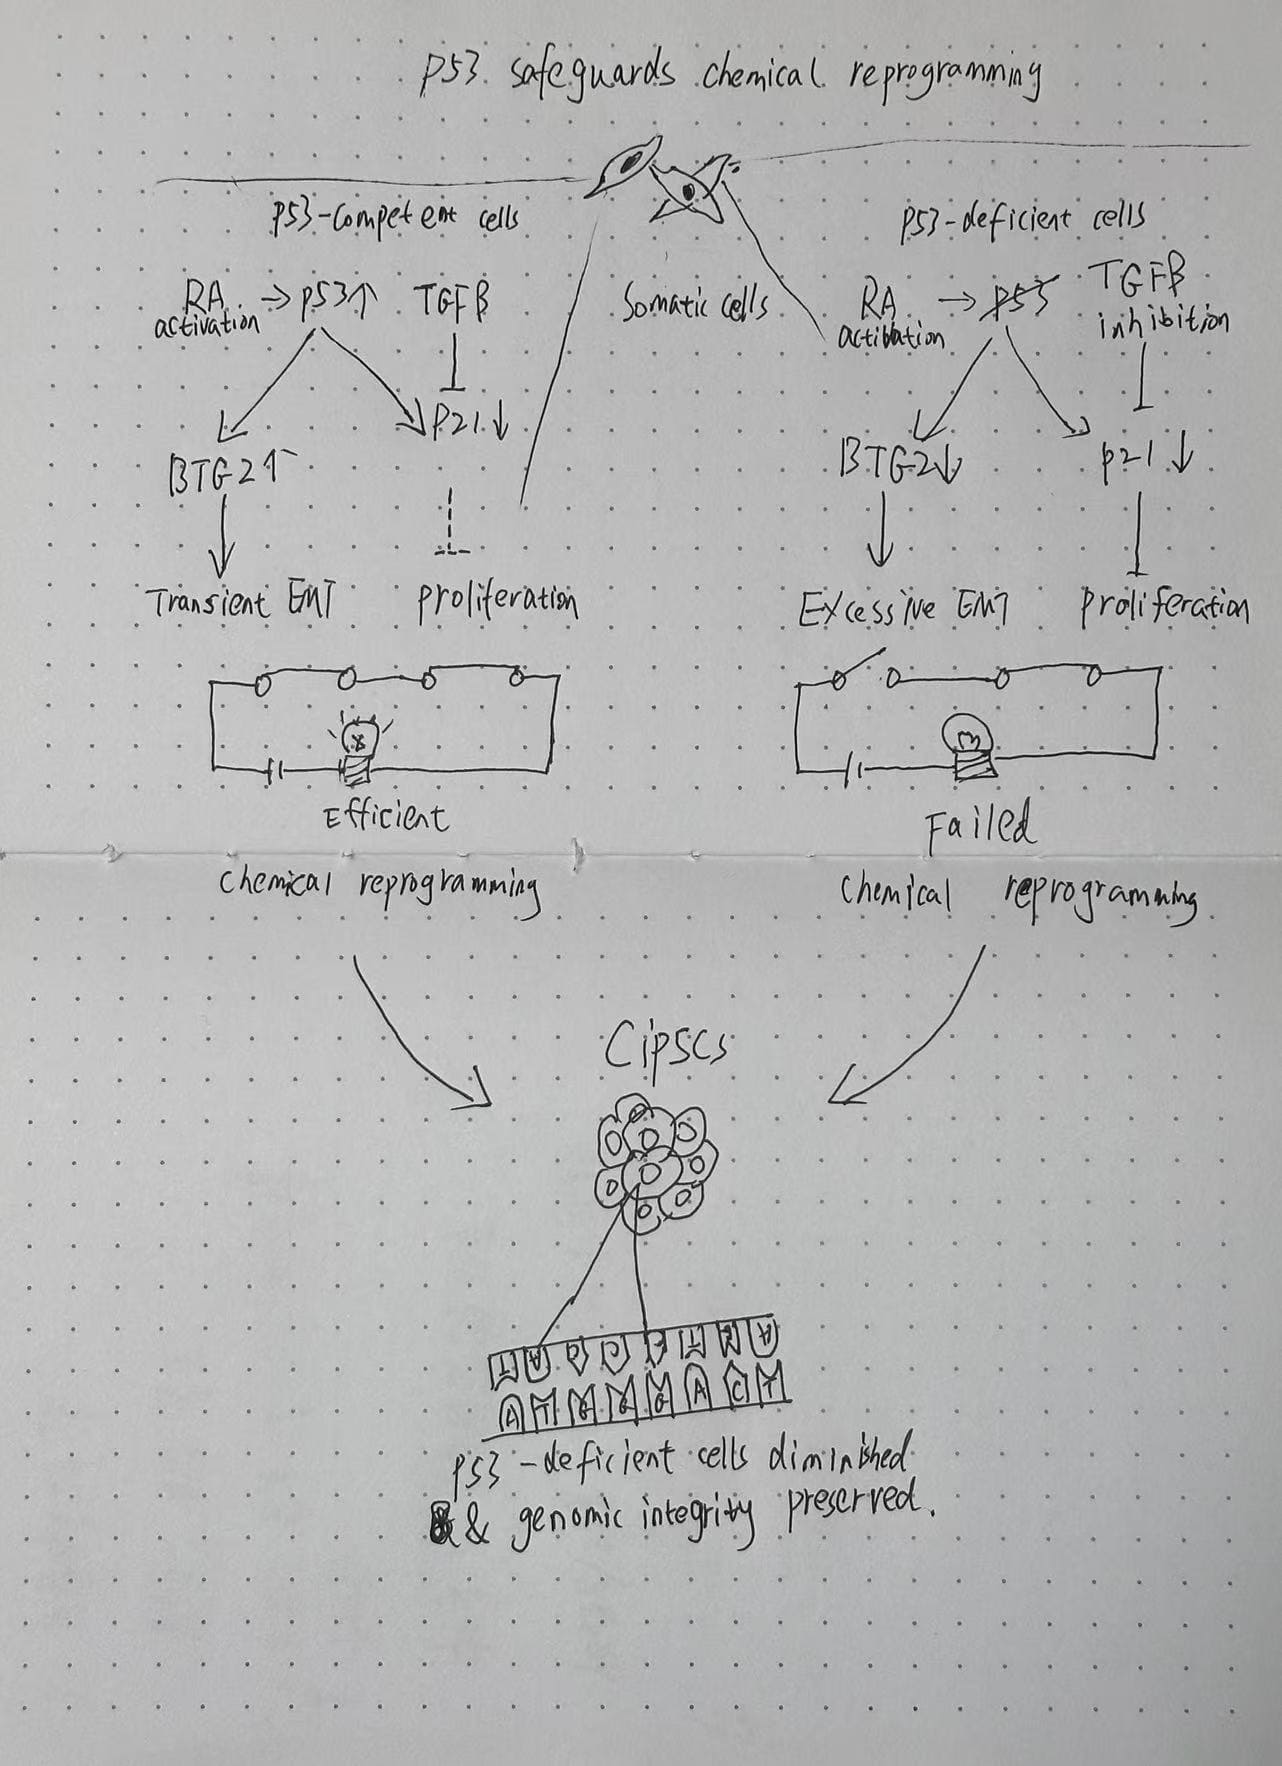 p53 safeguards chemical reprogramming
p53-competent cells
RA activation → p53↑
TGFβ
P21↓
BTG2↑
Transient EMT
proliferation
Efficient
chemical reprogramming
Somatic cells
p53-deficient cells
RA activation → p53
TGFβ
inhibition
BTG2↓
p21↓
Excessive EMT
proliferation
Failed
chemical reprogramming
CiPSCs
A T G G G A C T
p53-deficient cells diminished
& genomic integrity preserved.